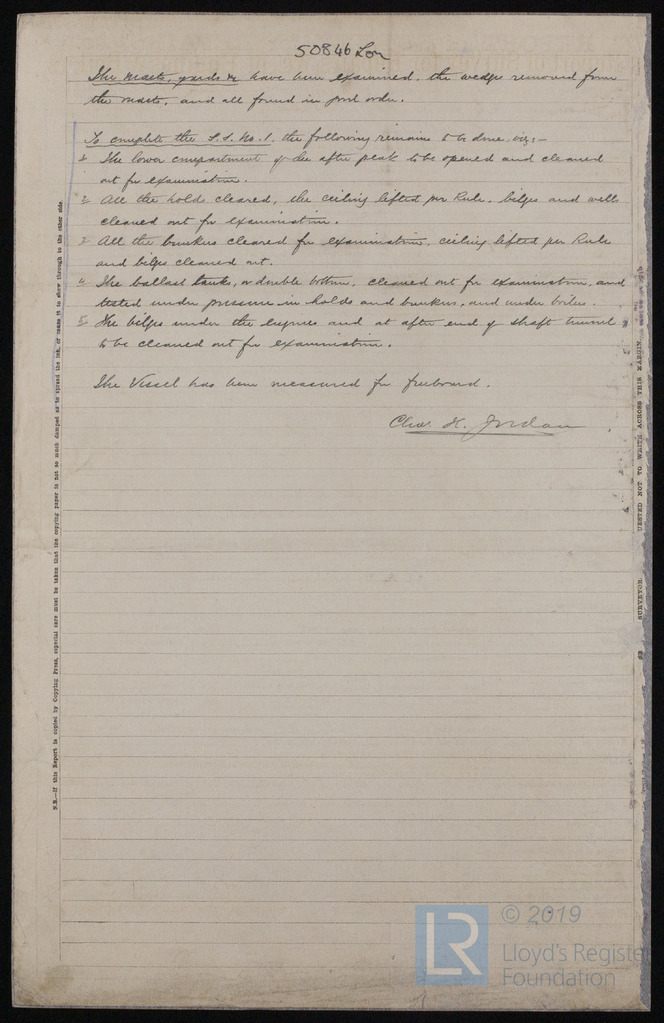 50846 Lon
The masts, yards &c have been examined, the wedges removed from
the masts, and all found in good order.
To complete the S.S. No. 1. the following remains to be done, viz:-
1 The lower compartment of the after peak to be opened and cleaned
out for examination.
2 All the holds cleared, the ceiling lifted per Rule. bilges and wells
cleaned out for examination.
3 All the bunkers cleared for examination, ceiling lifted per Rule
and bilges cleaned out.
4 The ballast tanks, or double bottom, cleaned out for examination, and
tested under pressure in holds and bunkers, and under boilers.
5 The bilges under the engines and at after end of shaft tunnel
to be cleaned out for examination.
The Vessel has been measured for freeboard.
Chas. H. Jordan
N.B.—If this Report is copied by Copying Press, especial care must be taken that the copying paper is not so much damped as to spread the ink, or cause it to show through to the other side.
SURVEYOR
UESTED NOT TO WRITE ACROSS THIS MARGIN.
LR
© 2019
Lloyd's Register
Foundation